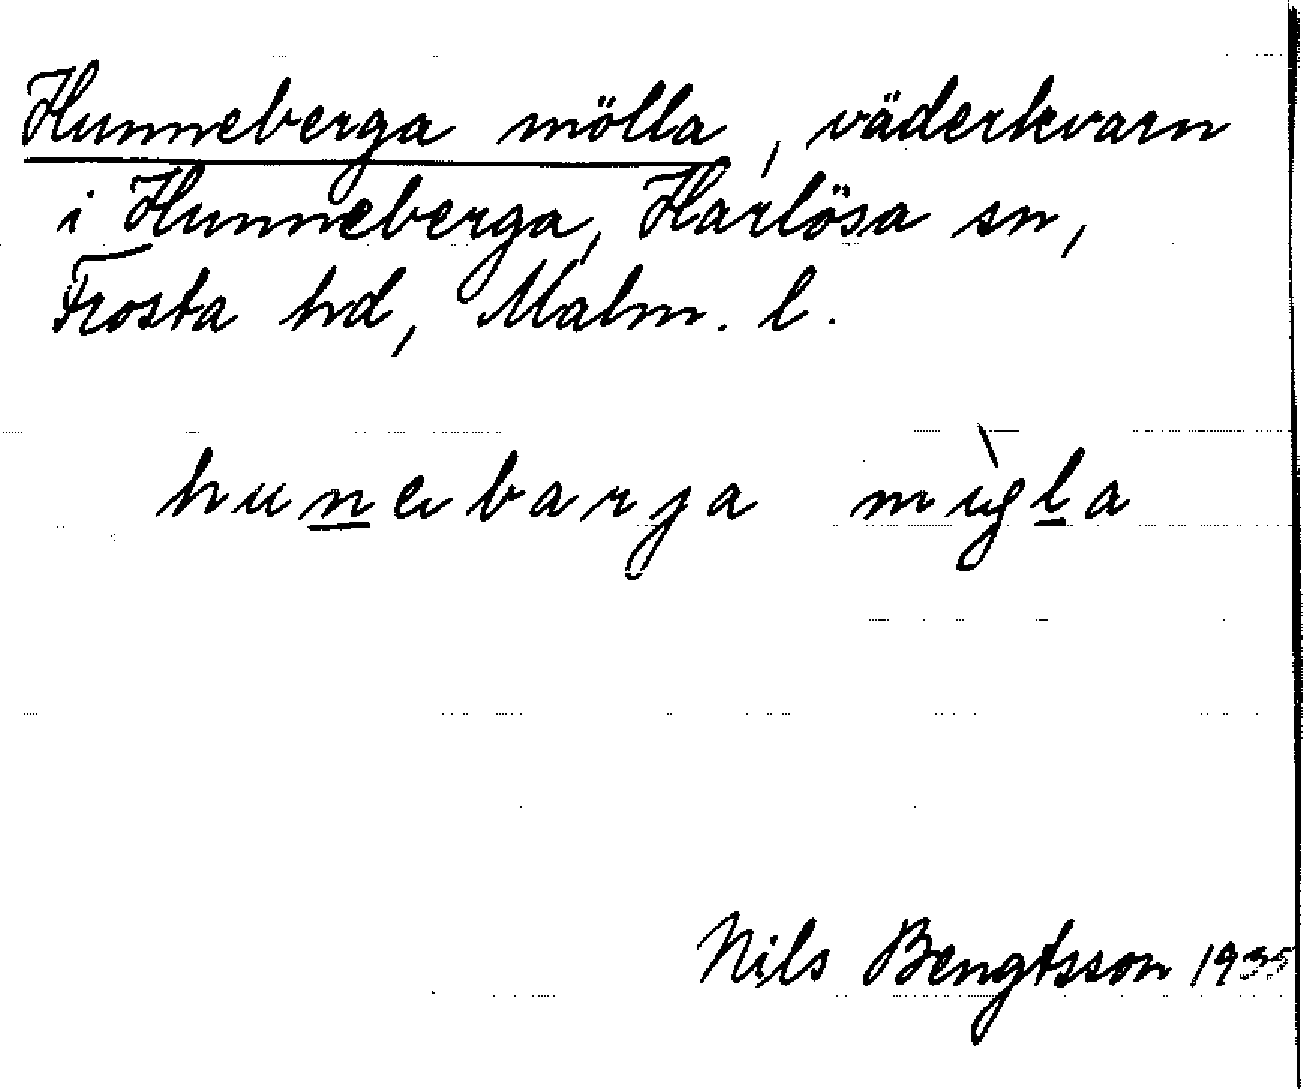 Hunneberga mölla, väderkvarn
i Hunneberga, Harlösa sn,
Frosta hd, Malm. l.
Nils Bengtsson 1935